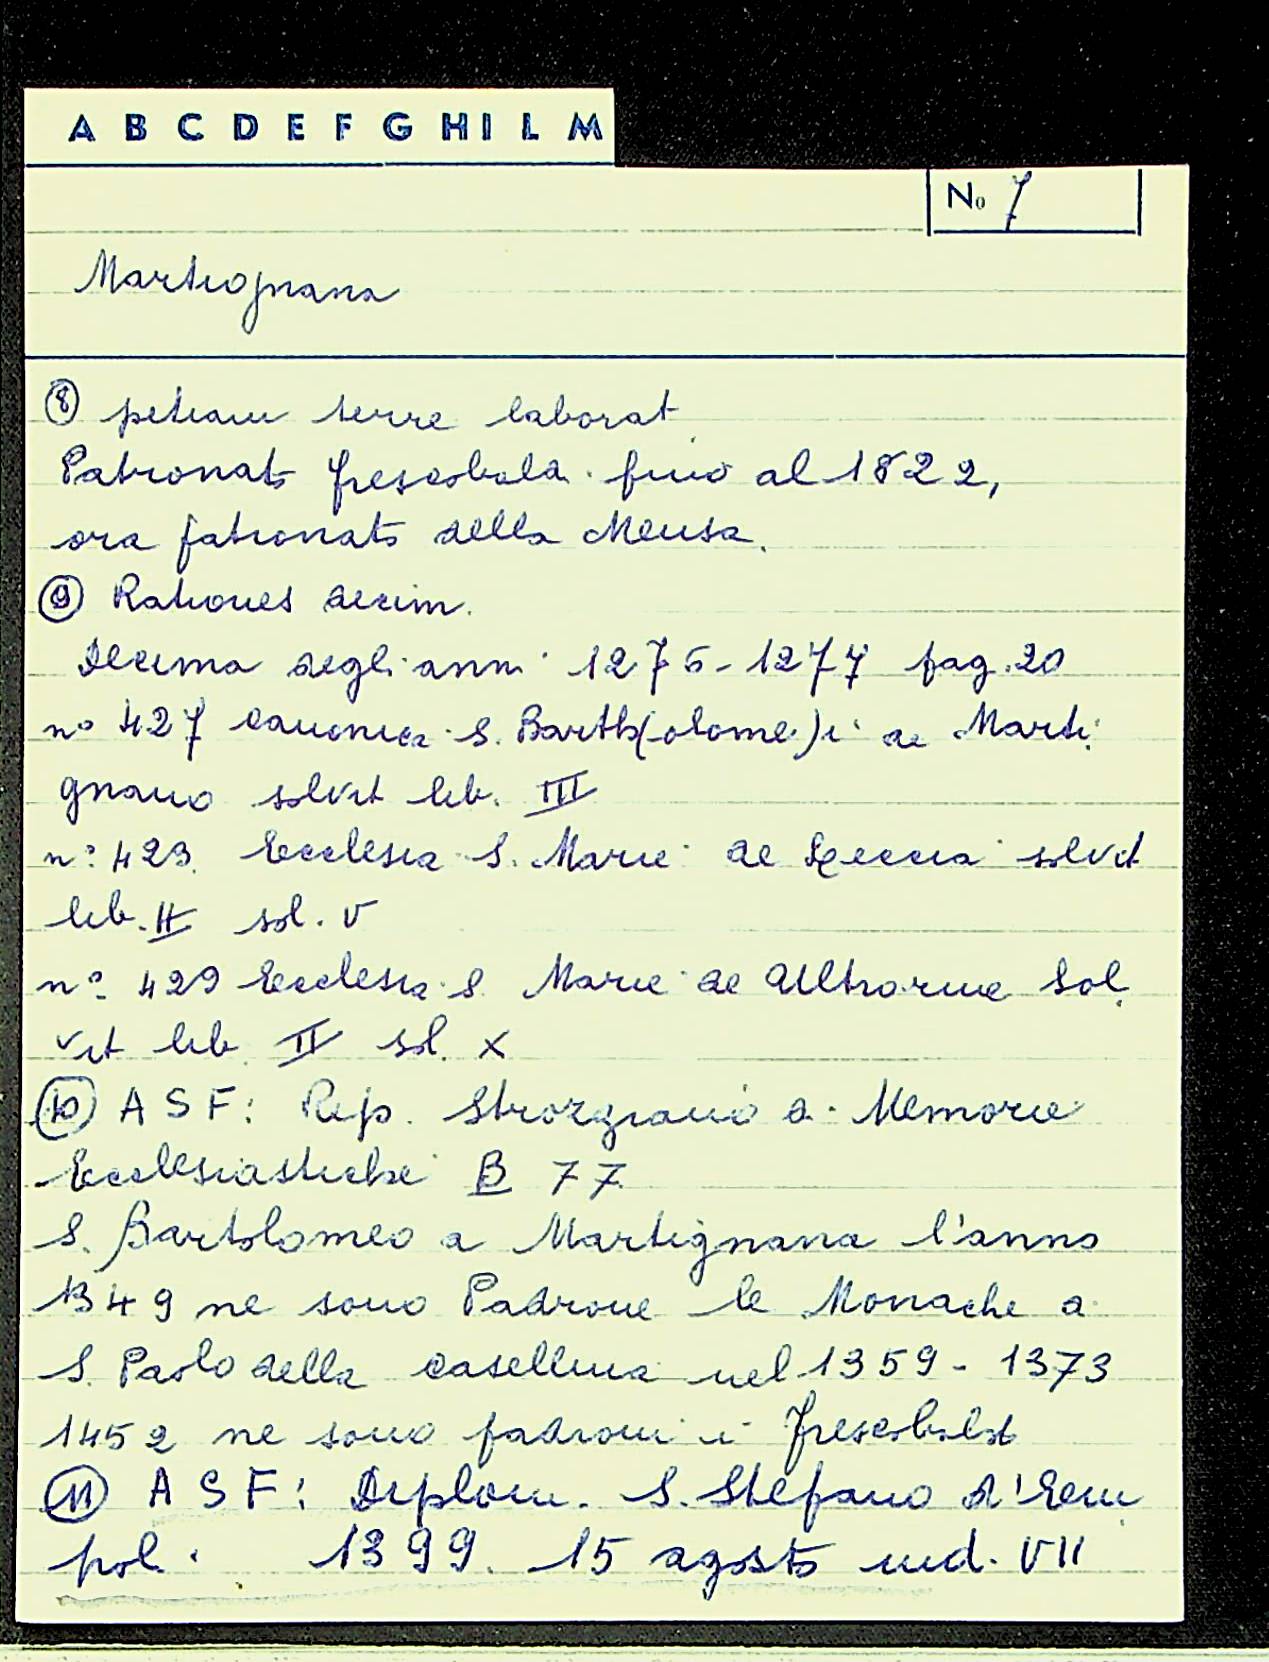 A B C D E F G H I L M
No 7
Martignana
⑧ petiam terre laborat.
Patronato Frescobaldi fino al 1822,
ora patronato della Mensa.
⑨ Rationes decim.
Decima degli anni 1276-1277 pag. 20
n° 427 canonica S. Barth(olome)i de Marti
gnano solvit lib. III
n° 423 Ecclesia S. Marie de Leccia solvit
lib. II sol. V
n° 429 Ecclesia S. Marie de solvit lib. II sol. X
⑩ A S F: Rep. Strozziano di Memorie
Ecclesiastiche B 77
S. Bartolomeo a Martignana l'anno
1349 ne sono Padrone le Monache di
S. Paolo della Casellina nel 1359 - 1373
1452 ne sono padroni i Frescobaldi
⑪ A S F: Diplom. S. Stefano d'Em
poli 1399. 15 agosto ind. VII